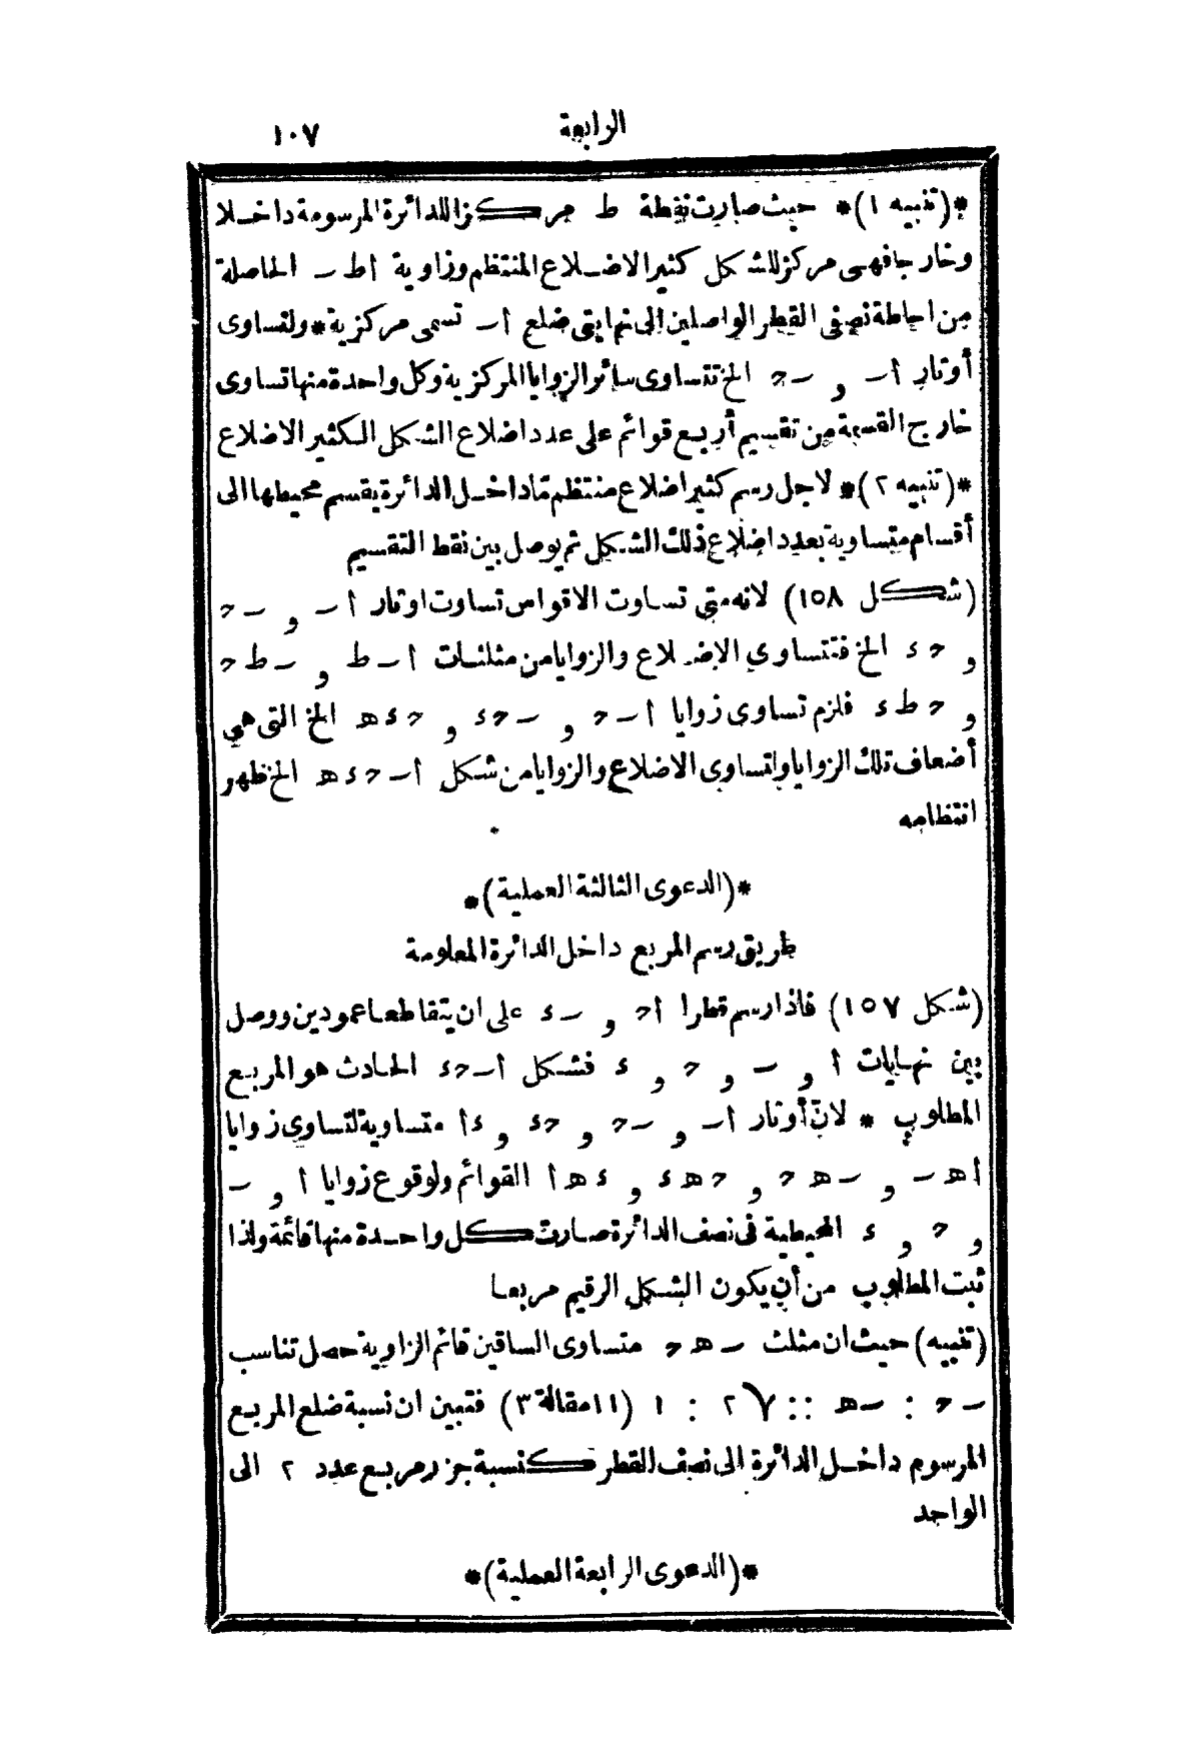 الرابعة ١٠٧
*(تنبيه ١)* حيث صارت نقطة ط مركزا للدائرة المرسومة داخلا
وخارجا فهى مركز للشكل كثير الاضلاع المنتظم وزاوية اطـ الحاصلة
من احاطة نصفى القطر الواصلين الى نهايتى ضلع اـ تسمى مركزية * ولتساوى
أوتار اـ و ـحـ الخ تتساوى سائر الزوايا المركزية وكل واحدة منها تساوى
خارج القسمة من تقسيم أربع قوائم على عدد اضلاع الشكل الكثير الاضلاع
*(تنبيه ٢)* لاجل رسم كثير اضلاع منتظم تما داخل الدائرة يقسم محيطها الى
أقسام متساوية بعدد اضلاع ذلك الشكل ثم يوصل بين نقط التقسيم
(شكل ١٥٨) لانه متى تساوت الاقواس تساوت اوتار اـ و ـحـ
و حـ ء الخ فتتساوى الاضلاع والزوايا من مثلثات اـط و ـطحـ
و حـطء فلزم تساوى زوايا اـحـ و ـحء و حءهـ الخ التى هى
أضعاف تلك الزوايا ولتساوى الاضلاع والزوايا من شكل اـحءهـ الخ ظهر
انتظامه
*(الدعوى الثالثة العملية)*
طريق رسم المربع داخل الدائرة المعلومة
(شكل ١٥٧) فاذا رسم قطرا احـ و ـء على ان يتقاطعا عمودين ووصل
بين نهايات ا و ـ و حـ و ء فشكل اـحء الحادث هو المربع
المطلوب * لانّ أوتار اـ و ـحـ و حء و ءا متساوية لتساوى زوايا
اهـ ـ و ـهـحـ و حـهـء و ءهـا القوائم ولوقوع زوايا ا و ـ
و حـ و ء المحيطية فى نصف الدائرة صارت كل واحدة منها قائمة ولذا
ثبت المطلوب من أن يكون الشكل الرقيم مربعا
(تنبيه) حيث ان مثلث ـهـحـ متساوى الساقين قائم الزاوية حصل تناسب
ـحـ : ـهـ :: √٢ : ١ (١١ مقالة ٣) فتبين ان نسبة ضلع المربع
المرسوم داخل الدائرة الى نصف القطر كنسبة جزر مربع عدد ٢ الى
الواحد
*(الدعوى الرابعة العملية)*